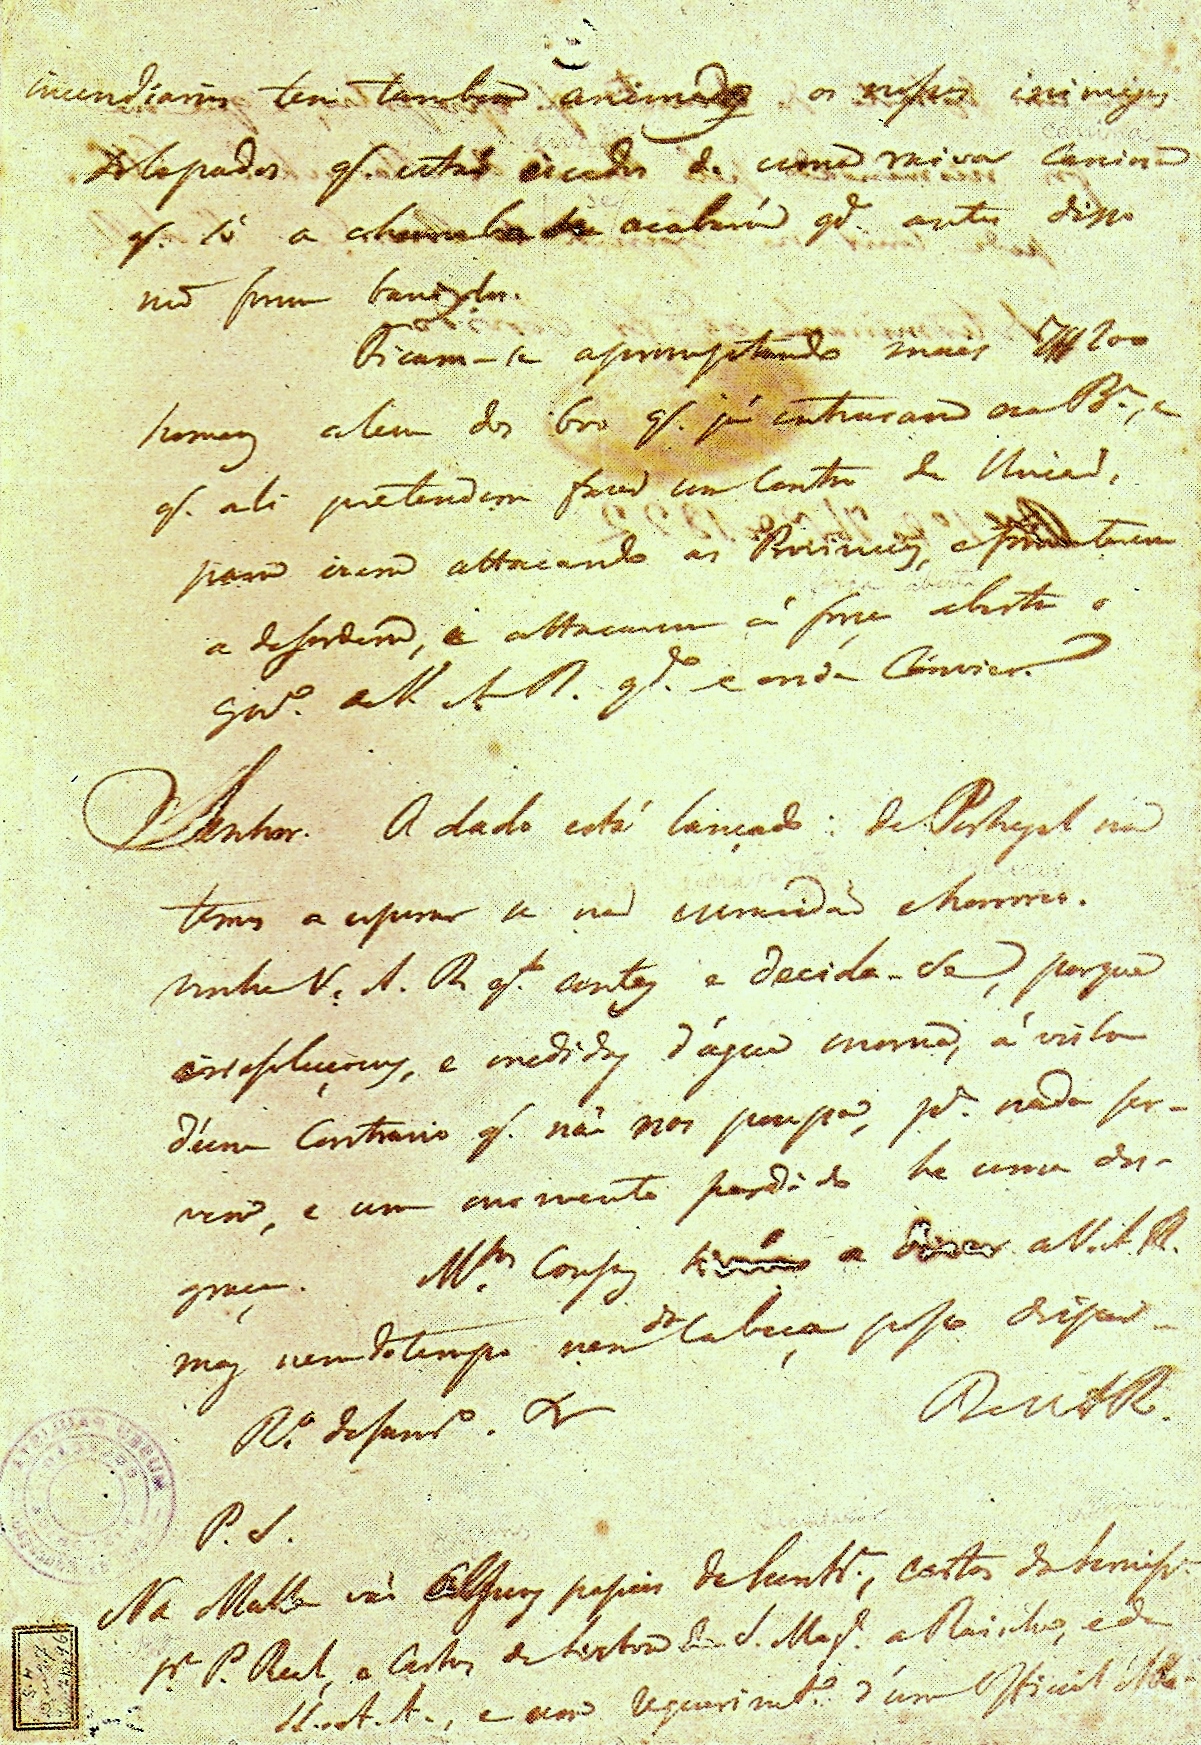 incendiarios tem tambem animado os nossos inimigos
q. estaõ eivados de uma raiva canina
q. só a chumbo se acabará qdo. antes disso
naõ forem banidos.
Ficam-se apromptando mais 7#200
homens alem dos 600 q. já entraraõ na Bª., e
q. ali pretendem fazer um Centro de Uniaõ,
para irem attacando as Provincias, e fomentarem
a desordem, e attacarem á força aberta o
Gov.º de V. A. R. qdo. e onde Convier.
Senhor. O dado está lançado: de Portugal naõ
temos a esperar se naõ escravidaõ e horrores.
Venha V. A. R. q.to antes e decida-se, porque
irresoluçoens, e medidas d'água morna, á vista
d'esse Contrario q. não nos poupa, pª. nada ser-
vem, e um momento perdido he uma des-
graça. M.tas Cousas a dizer a V. A. R.
mas nem do tempo nem da Cabeça posso dispor
P. S.
Na Malla vaõ Alguns papeis de Cartas
pª. P. Real, e Cartas de Lisboa de S. Mag.e a Rainha, e de
M. A. A., e um requerim.to d'um Official